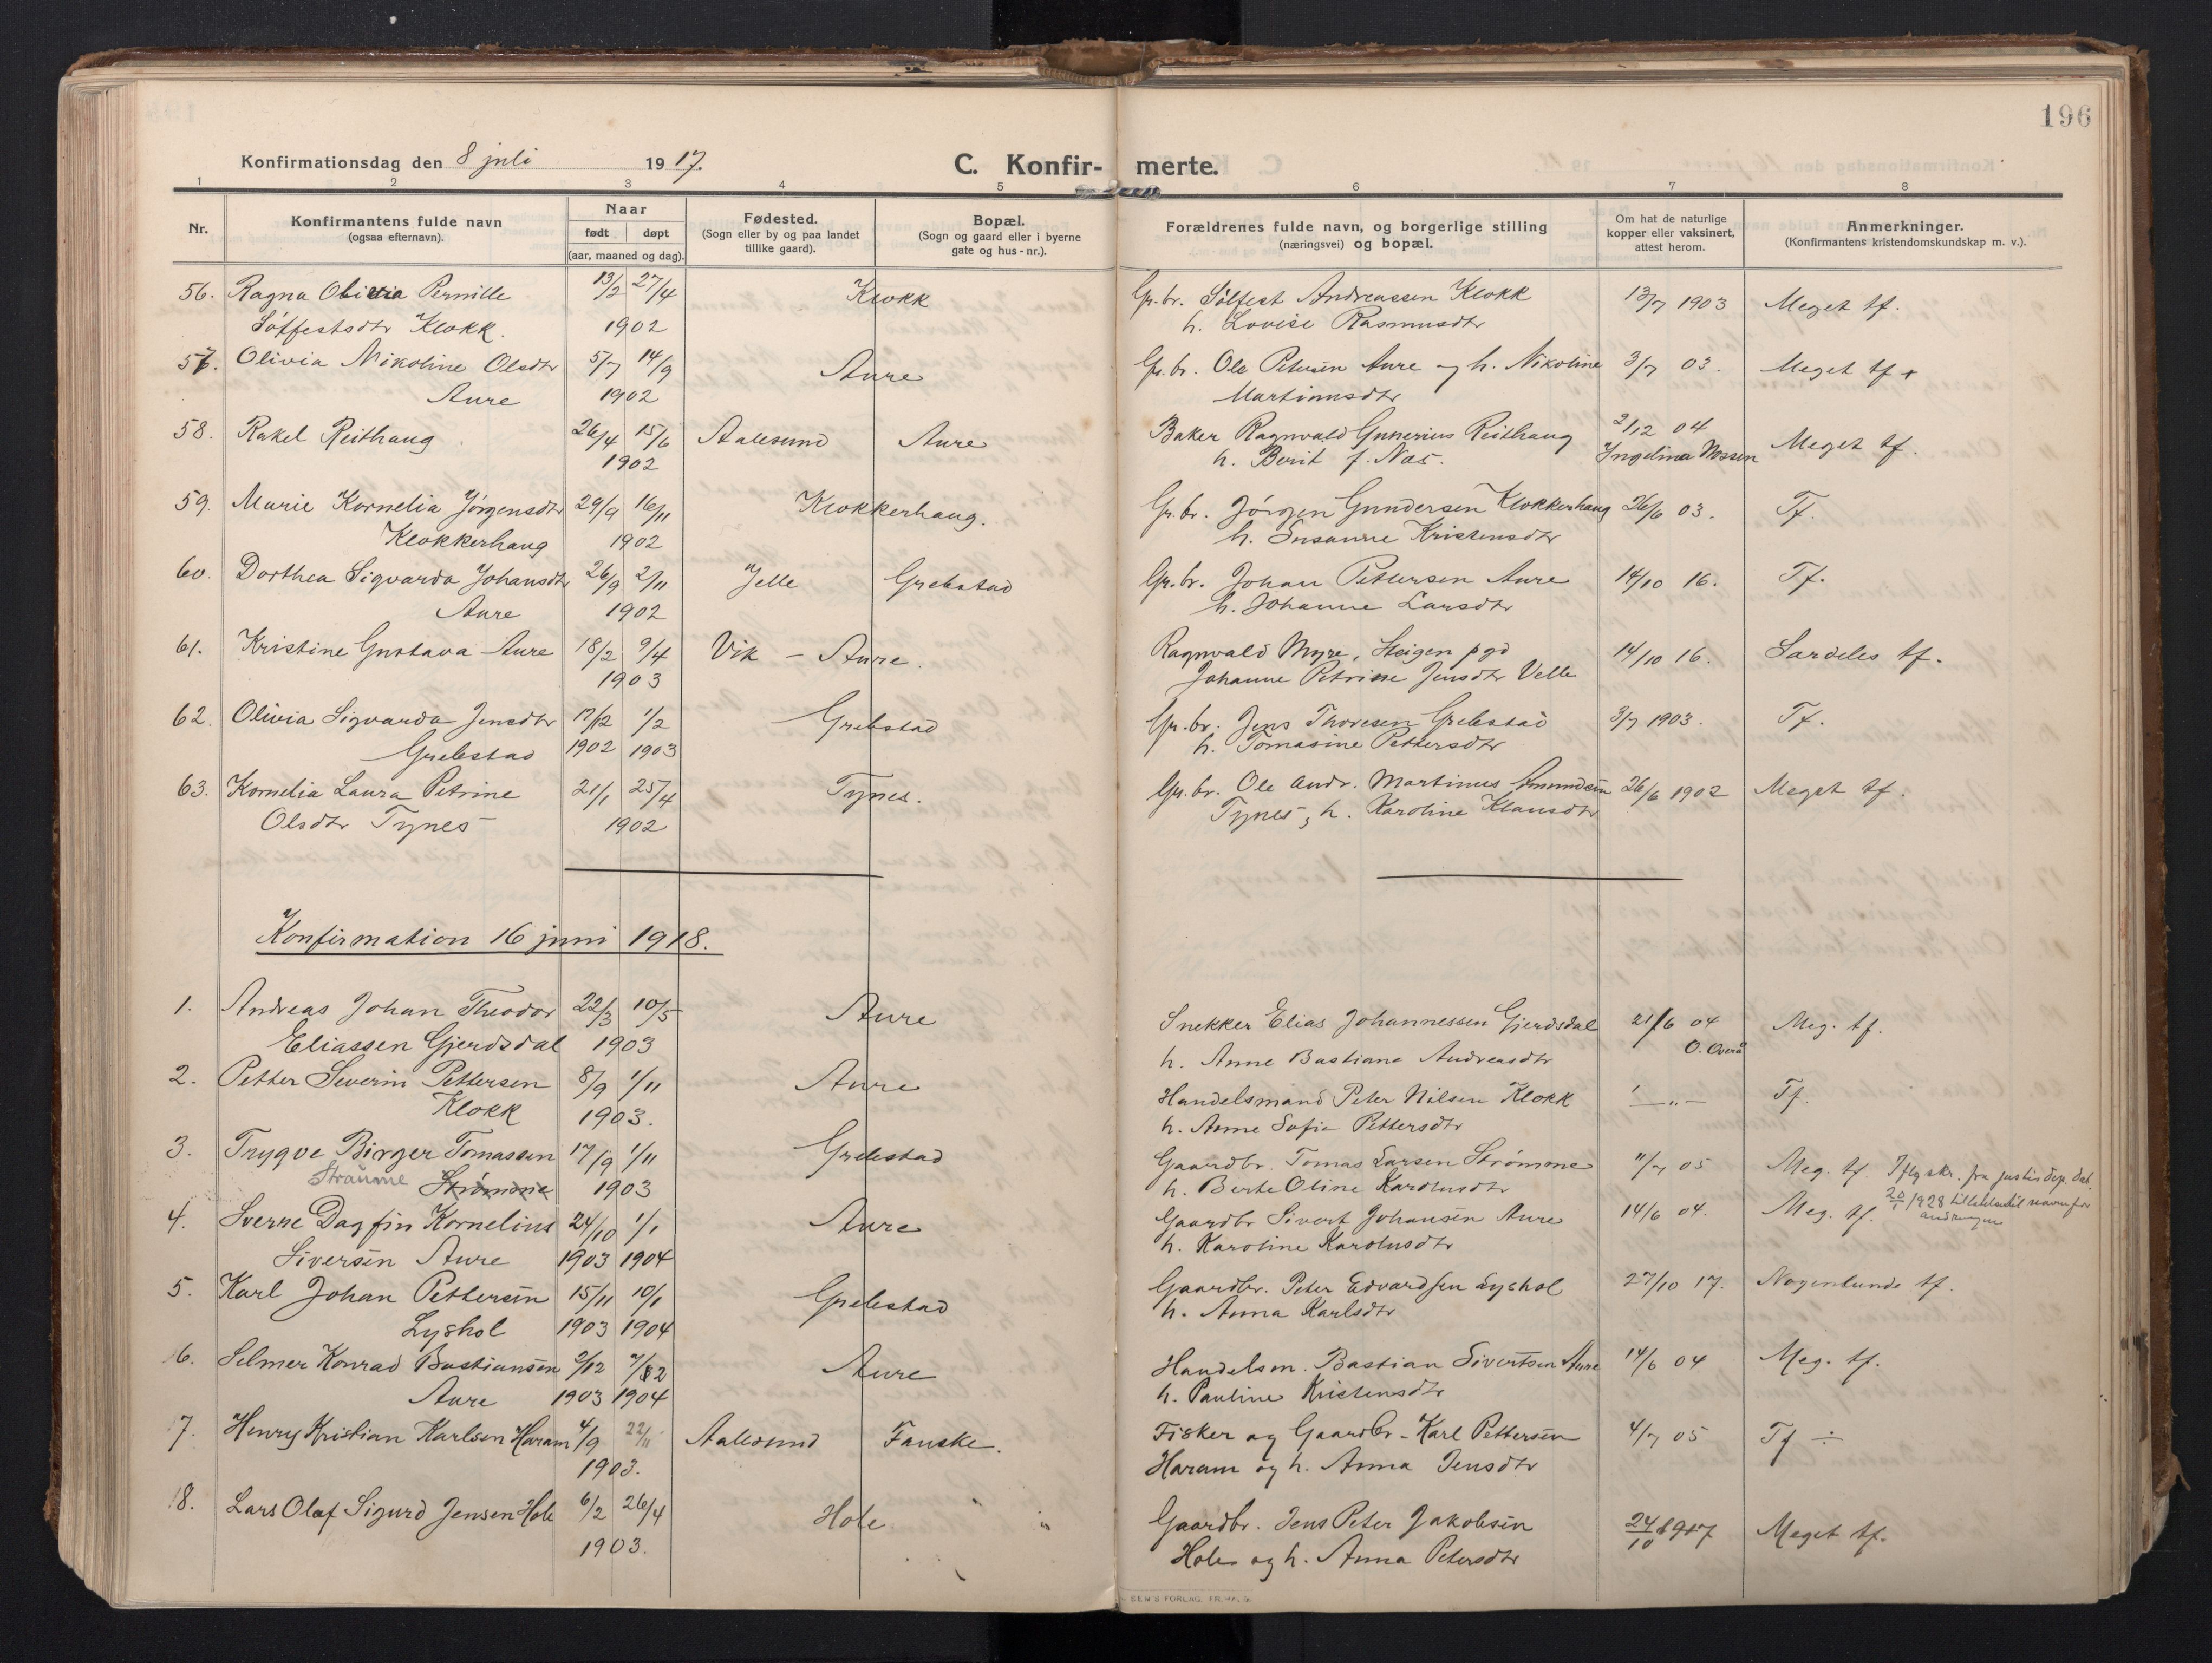 196
Konfirmationsdag den 8 juli 1917.
C. Konfir- merte.
1 2 3 4 5 6 7 8
Nr.
Konfirmantens fulde navn
(ogsaa efternavn).
Naar
født døpt
(aar, maaned og dag).
Fødested.
(Sogn eller by og paa landet
tillike gaard).
Bopæl.
(Sogn og gaard eller i byerne
gate og hus-nr.).
Forældrenes fulde navn, og borgerlige stilling
(næringsvei) og bopæl.
Om hat de naturlige
kopper eller vaksinert,
attest herom.
Anmerkninger.
(Konfirmantens kristendomskundskap m. v.).
56. Ragna Olivia Pernille 13/2 27/4 Klokk Gr. br. Sølfest Andreassen Klokk 13/7 1903 Meget tf.
Sølfestsdtr Klokk. 1902 h. Lovise Rasmusdtr
57. Olivia Nikoline Olsdtr 5/7 14/9 Aure Gr. br. Ole Petersen Aure og h. Nikoline 3/7 03. Meget tf +
Aure 1902 Martinusdtr
58. Rakel Reithaug 26/4 15/6 Aalesund Aure Baker Ragnvald Gunerius Reithaug 2/12 04 Meget tf.
1902 h. Berit f. Nas. Ingelina Mossen
59. Marie Kornelia Jørgensdtr 29/9 16/11 Klokkerhaug. Gr. br. Jørgen Gundersen Klokkerhaug 26/6 03. Tf.
Klokkerhaug 1902 h. Susanne Kristensdtr
60. Dorthea Sigvarda Johansdtr 26/9 2/11 Jelle Grebstad Gr. br. Johan Pettersen Aure 14/10 16. Tf.
Aure 1902 h. Johanne Larsdtr
61. Kristine Gustava Aure 18/2 9/4 Vik - Aure. Ragnvald Myre, Steigen pgd 14/10 16. Særdeles tf.
1903 Johanne Petrine Jensdtr Velle
62. Olivia Sigvarda Jensdtr 17/12 1/2 Grebstad Gr. br. Jens Thoresen Grebstad 3/7 1903. Tf.
Grebstad 1902 1903 h. Tomasine Pettersdtr
63. Kornelia Laura Petrine 21/1 25/4 Tynes. Gr. br. Ole Andr. Martinus Amundsen 26/6 1902 Meget tf.
Olsdtr Tynes 1902 Tynes, h. Karoline Klausdtr
Konfirmation 16 juni 1918.
1. Andreas Johan Theodor 22/3 10/5 Aure Snekker Elias Johannessen Gjerdsdal 21/6 04 Meg. tf.
Eliassen Gjerdsdal 1903 h. Anne Bastiane Andreasdtr O. Overå
2. Petter Severin Pettersen 8/9 1/11 Aure Handelsmand Peter Nilsen Klokk — „ — Tf.
Klokk 1903. h. Anne Sofie Pettersdtr
3. Trygve Birger Tomassen 17/9 1/11 Grebstad Gaardbr. Tomas Larsen Strømme 11/7 05 Meg. tf. Iflg skr. fra justisdep. dat.
Straume Strømme 1903 h. Berte Oline Karolusdtr 20/1 1928 til navnefor
andringen
4. Sverre Dagfin Kornelius 24/10 1/1 Aure Gaardbr Sivert Johansen Aure 14/6 04. Meg. tf.
Siversen Aure 1903 1904 h. Karoline Karolusdtr
5. Karl Johan Pettersen 15/11 10/1 Grebstad Gaardbr. Peter Edvardsen Lyshol 27/10 17. Nogenlunde tf.
Lyshol 1903 1904 h. Anna Karlsdtr
6. Selmer Konrad Bastiansen 2/12 7/2 Aure Handelsm. Bastian Sivertsen Aure 14/6 04 Meg. tf.
Aure 1903 1904 h. Pauline Kristensdtr
7. Henry Kristian Karlsen Haram 4/9 22/11 Aalesund Fauske. Fisker og Gaardbr. Karl Pettersen 4/7 05 Tf ÷
1903. Haram og h. Anna Jensdtr
8. Lars Olaf Sigurd Jensen Hole 6/2 26/4 Hole Gaardbr. Jens Peter Jakobsen 24/10 1917 Meget tf.
1903. Hole og h. Anna Petersdtr
SEM'S FORLAG, FR.HALD.